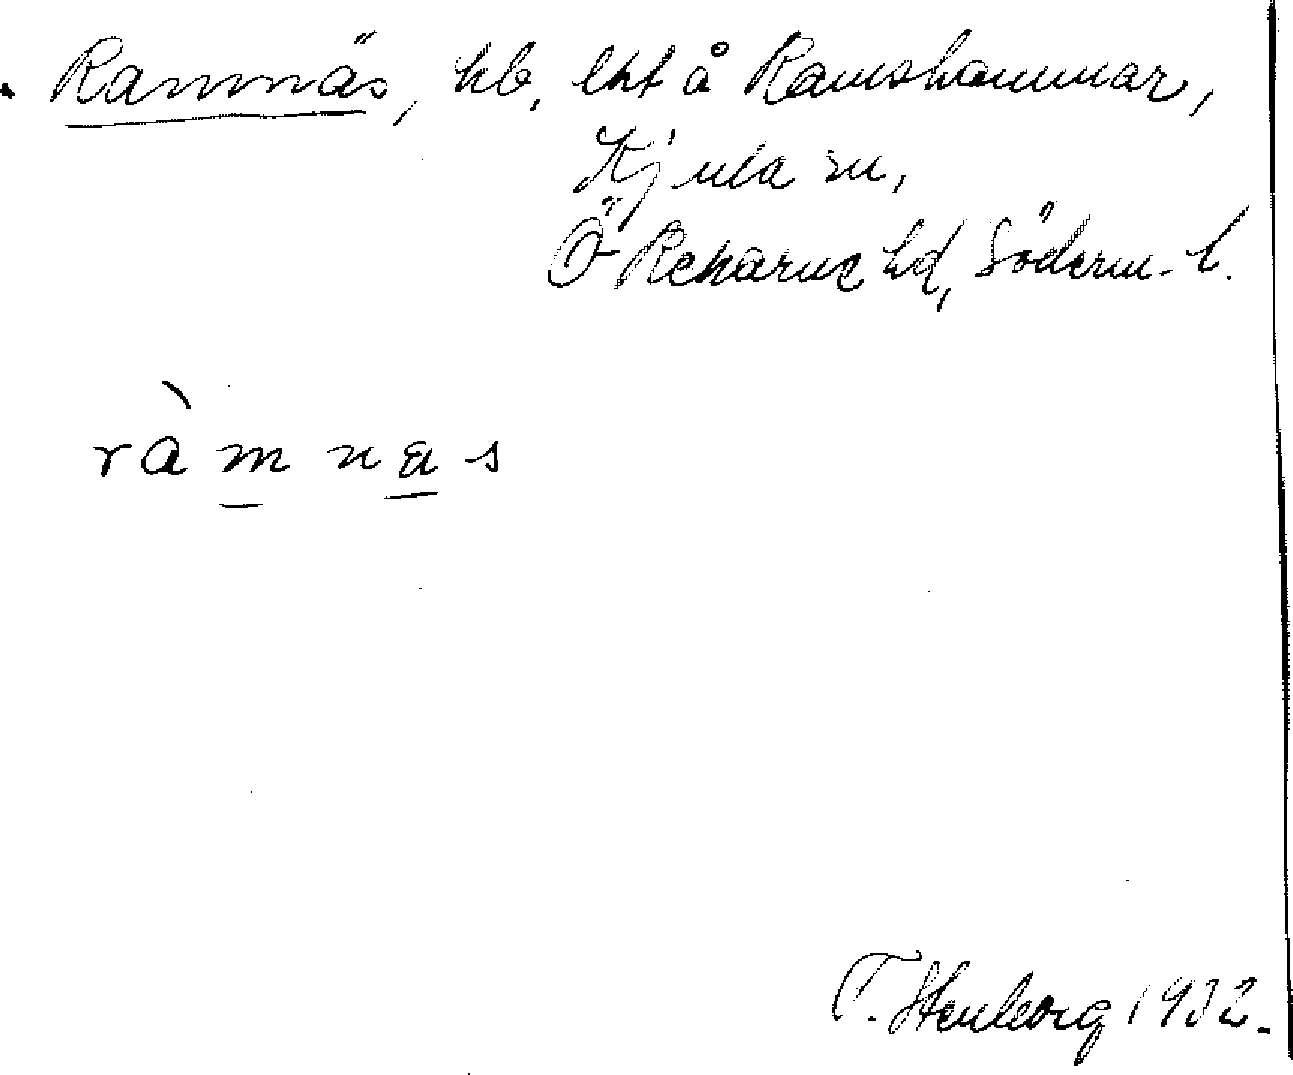 Ramnäs, hb, lht å Ramshammar,
Kjula sn,
Ö Rekarne hd, Söderm. l.
ràmnäs
T. Stenborg 1932.